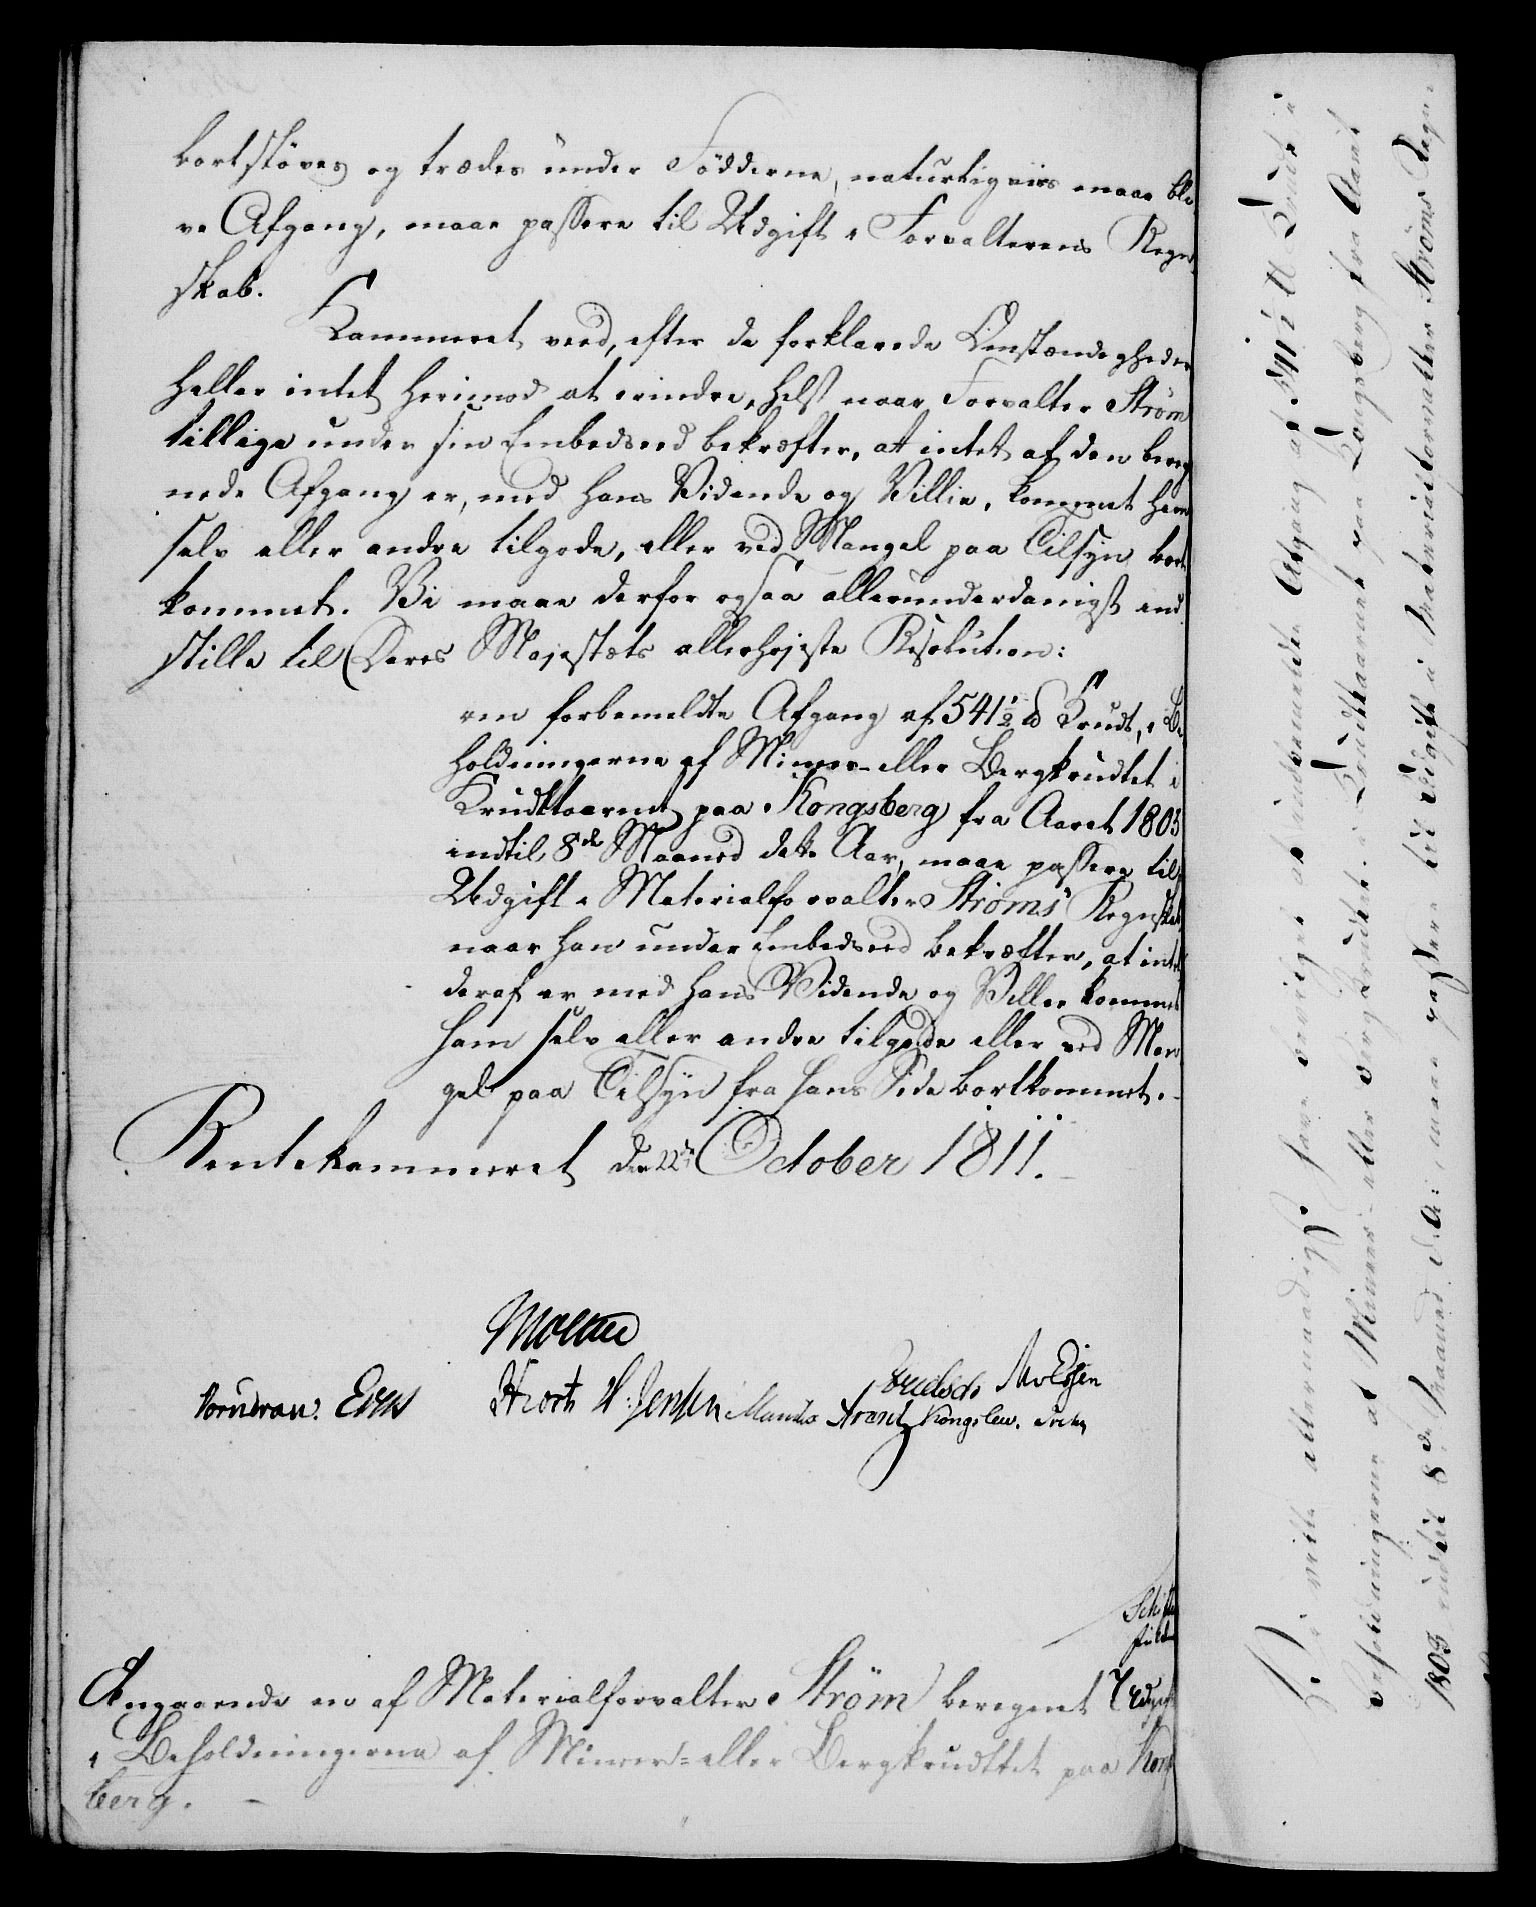 bortstöves og trædes under Födderne, naturligviis maae bli-
ve Afgang, maae passere til Udgift i Forvalterens Regn-
skab.
Kammeret veed, efter de forklarede Omstændigheder
heller intet herimod at erindre, helst naar Forvalter Ström
tillige under sin Embedseed bekræfter, at intet af den bereg
nede Afgang er, med hans Vidende og Villie, kommet ham
selv eller andre tilgode, eller ved Mangel paa Tilsyn bort
kommet. Vi maae derfor ogsaa allerunderdanigst ind
stille til Deres Majestæts allerhöjeste Resolution:
om forbemeldte Afgang af 541½ ℔ Krudt, i Be
holdningerne af Mineer- eller Bergkrudtet i
Krudttaarnet paa Kongsberg fra Aaret 1803
indtil 8de Maaned dette Aar, maae passere til
Udgift i Materialforvalter Ströms Regnskab,
naar han under Embedseed bekræfter, at intet
deraf er med hans Vidende og Villie kommet
ham selv eller andre tilgode eller ved Man
gel paa Tilsyn fra hans Side bortkommet. -
Rentekammeret den 22de October 1811.
Moltke
Vornæran. Evers Hiorth H: Jensen Manthe Arentz Kongslew.
Angaaende en af Materialforvalter Ström beregnet Udgift
i Beholdningerne af Mineer- eller Bergkrudttet paa Kongs
berg. -
Vi ville allernaadigst have bevilget at indbemeldte Afgang af 541½ ℔ Krudt i
Beholdningerne af Mineer- eller Bergkrudtet i Krudttaarnet paa Kongsberg fra Aaret
1803 indtil 8de Maaned d. A: maae passere til Udgift i Materialforvalter Ströms Regn-